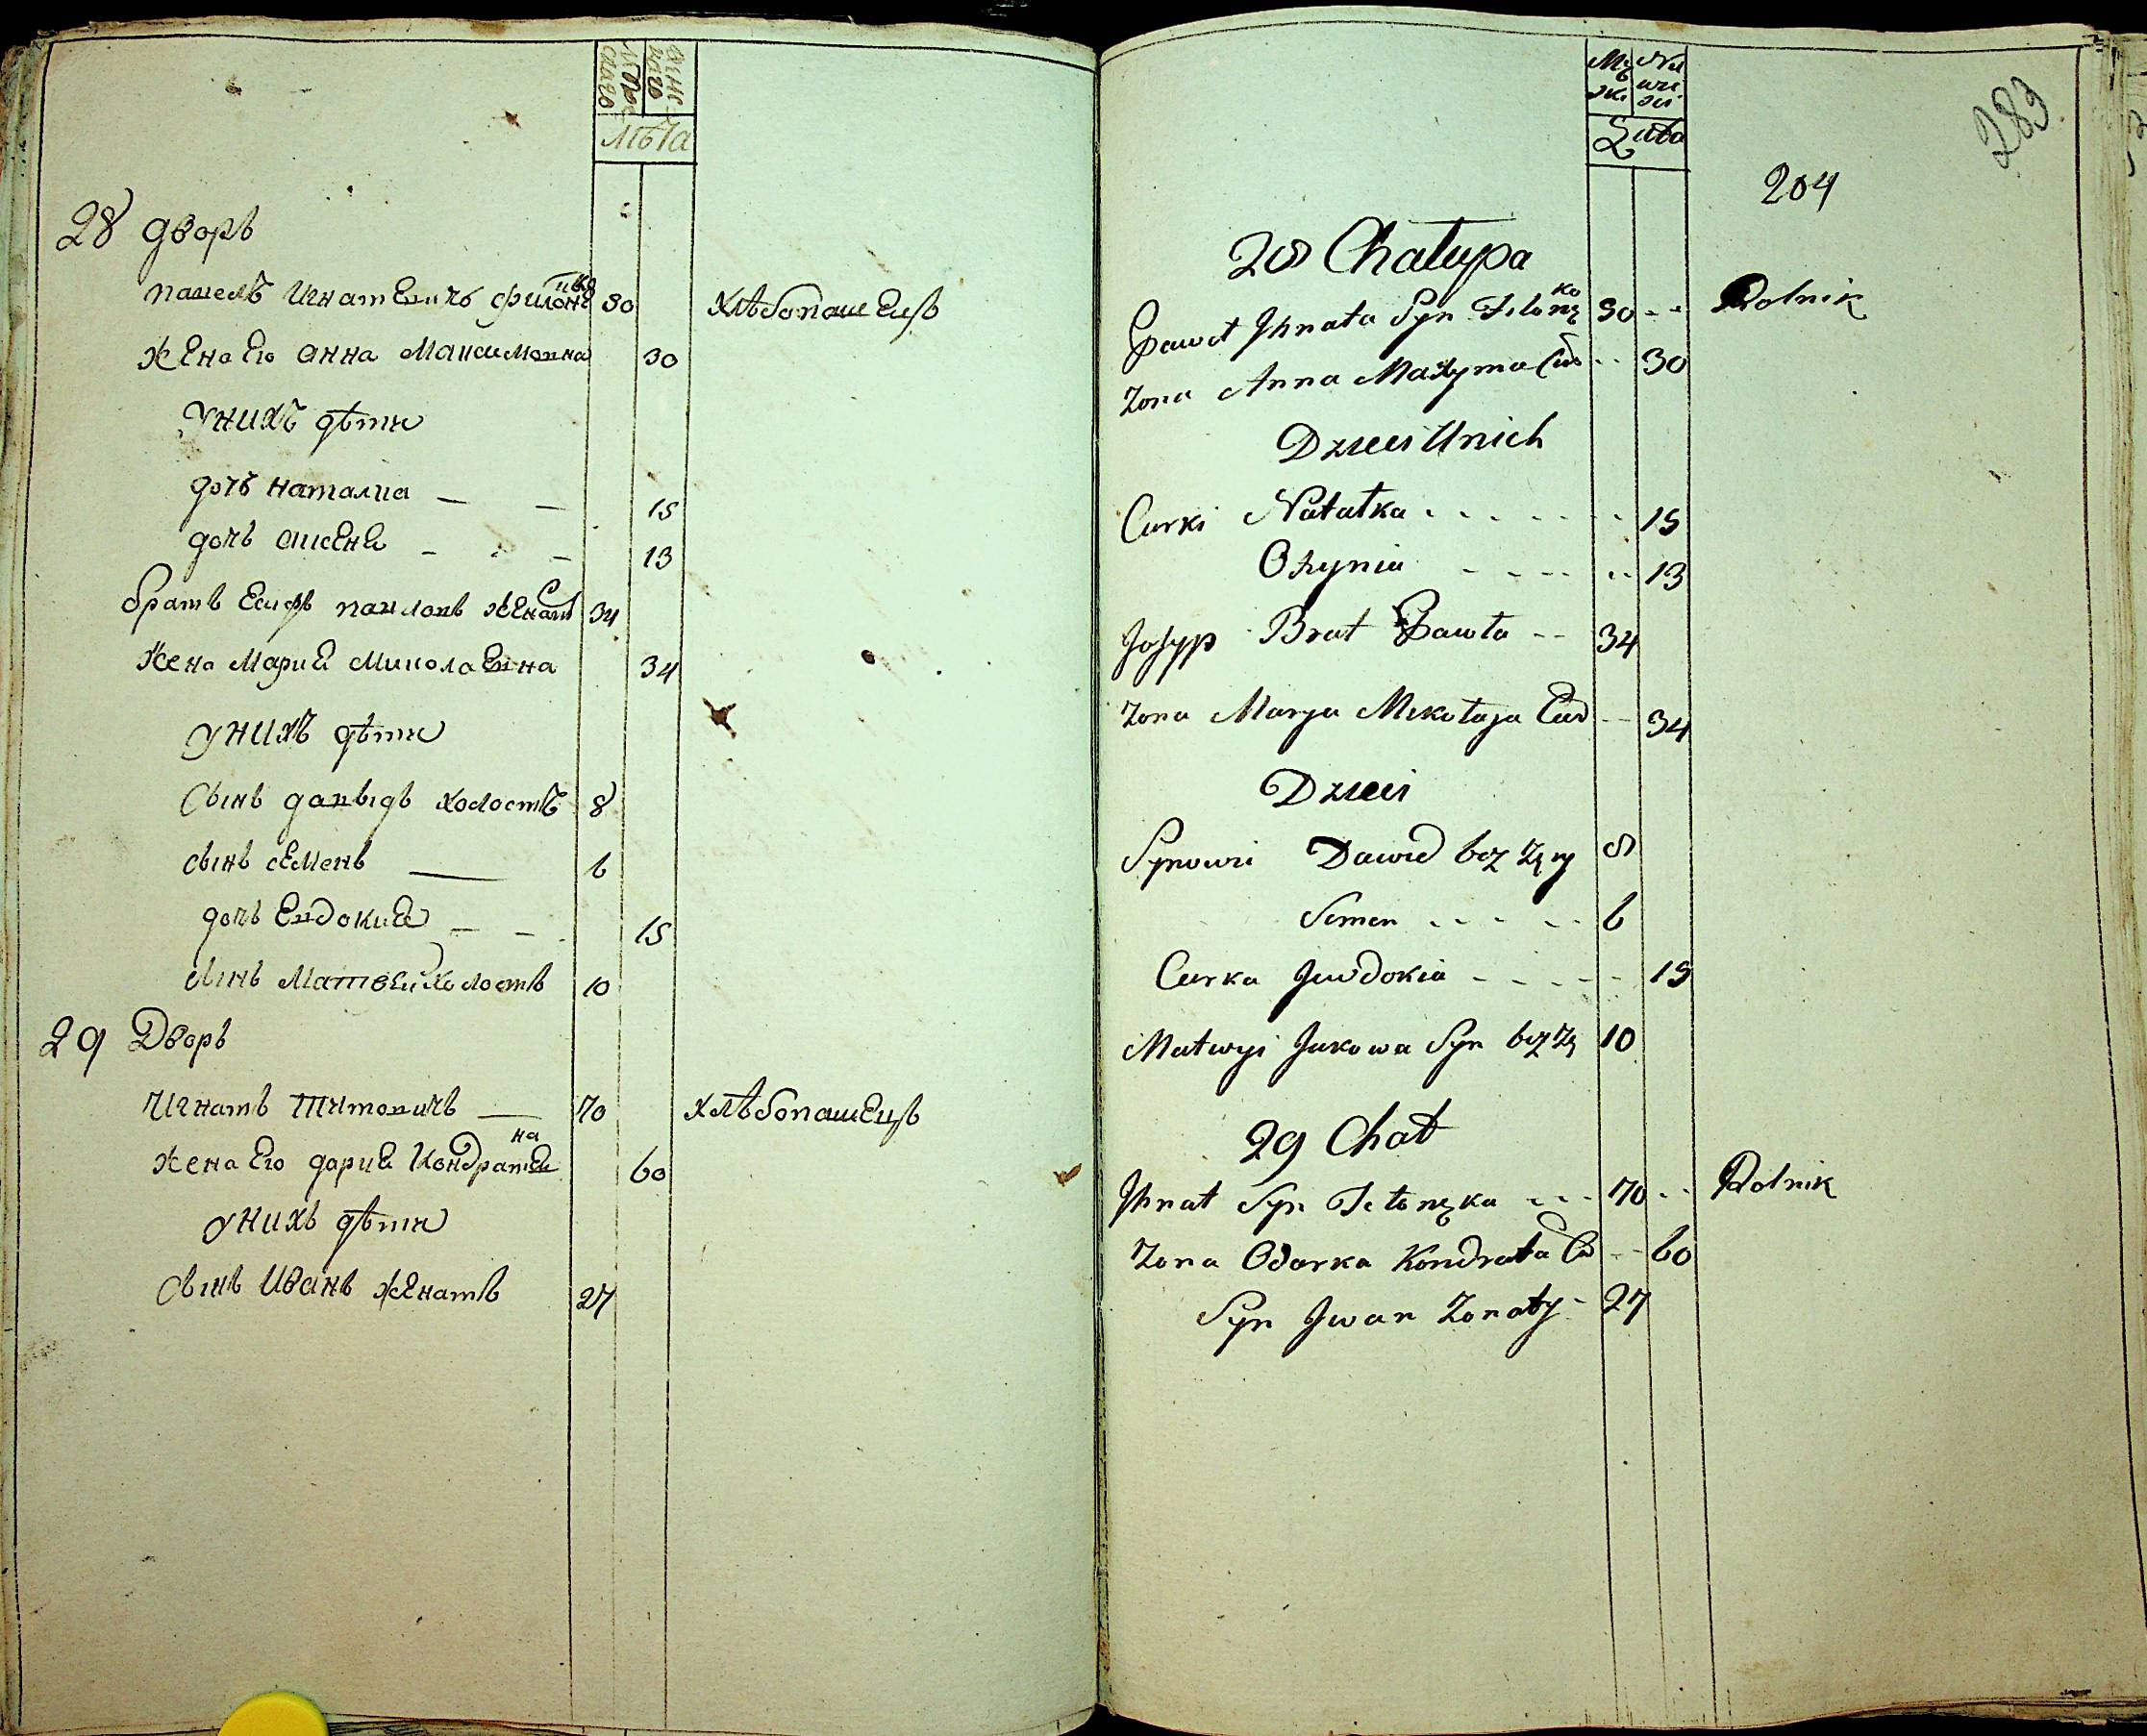 мужескаго
женскаго
лѣта
28 дворъ
павелъ игнатевичъ филоненко 30 хлѣбопашецъ
жена его анна максимовна 30
у нихъ дѣти
дочь наталиа — — 15
дочь аксения - - — 13
братъ есифъ павловъ женатъ 34
жена Мария Миколаевна 34
у нихъ дѣти
сынъ давыдъ холостъ 8
сынъ семенъ — 6
дочь Евдокия — — 15
сынъ Матвей холостъ 10
29 Дворъ
Игнатъ Титовичъ — 70 хлѣбопашецъ
жена его дария Кондратевна 60
у нихъ дѣти
сынъ Иванъ женатъ 27
283
Męskie
Lata
204
28 Chałupa
Paweł Jhnata Syn Filonęko 30 - - Rolnik
Zona Anna Maxyma Cur - - 30
Dzieci Unich
Curki Natałka - - - - - - 15
Oxynia - - - - - - 13
Josyp Brat Pawła - - 34
Zona Marya Mikołaja Cur - - 34
Dzieci
Synowie Dawid bez żęy 8
Semen - - - - - 6
Curka Jewdokia - - - - - 15
Matwyi Jakowa Syn bez żę 10
29 Chał
Jhnat Syn Filonęka - - - 70 - - Rolnik
Zona Odarka Kondrata Cu - - 60
Syn Jwan Zonaty - 27